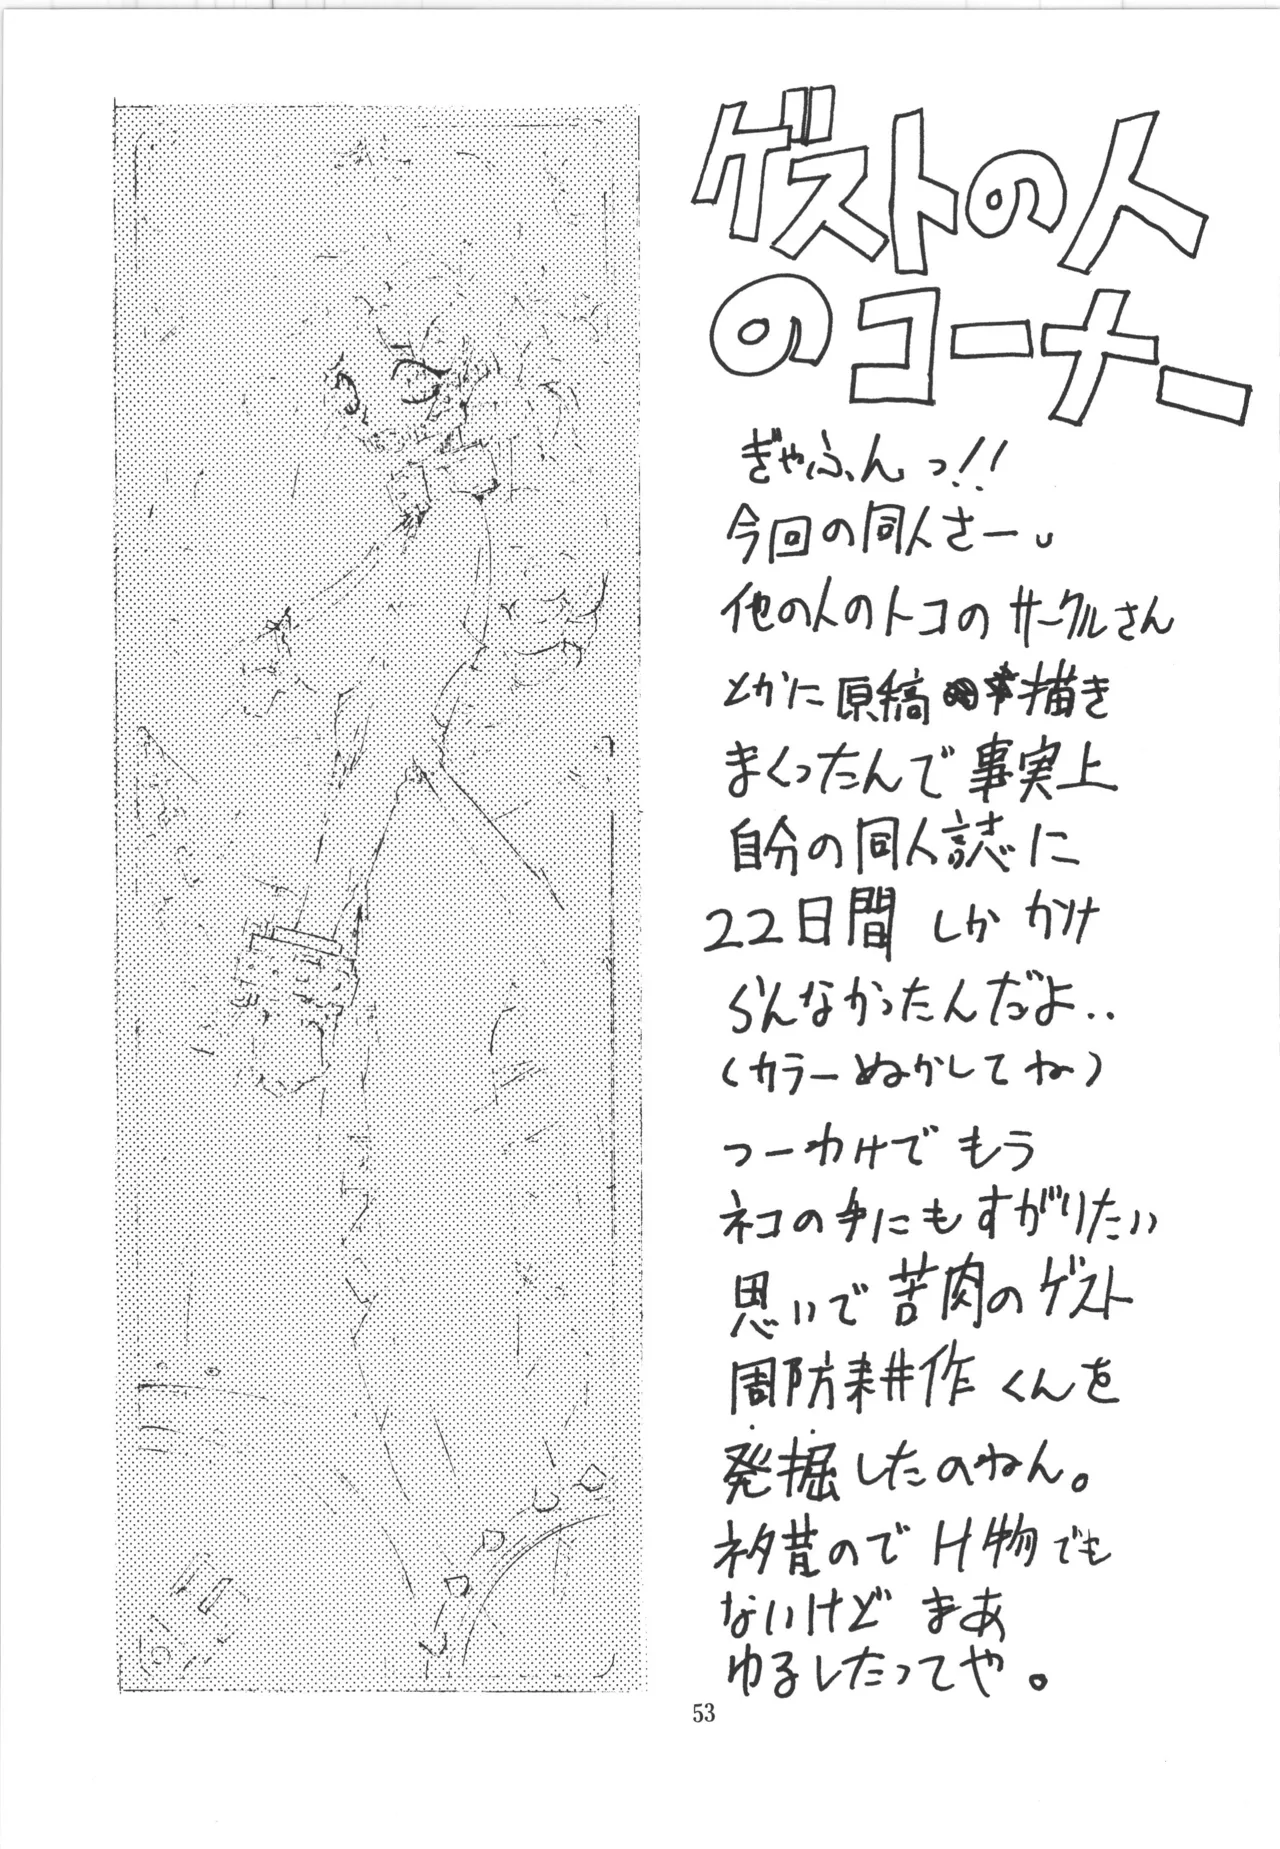 ゲストの人
のコーナー
ぎゃふんっ!!
今回の同人さー、
他の人のトコのサークルさん
とかに原稿描き
まくったんで事実上
自分の同人誌に
22日間しかかけ
らんなかったんだよ..
(カラーぬかしてね)
つーわけでもう
ネコの手にもすがりたい
思いで苦肉のゲスト
周防耕作くんを
発掘したのねん。
ネタ昔のでH物でも
ないけどまあ
ゆるしたってや。
53